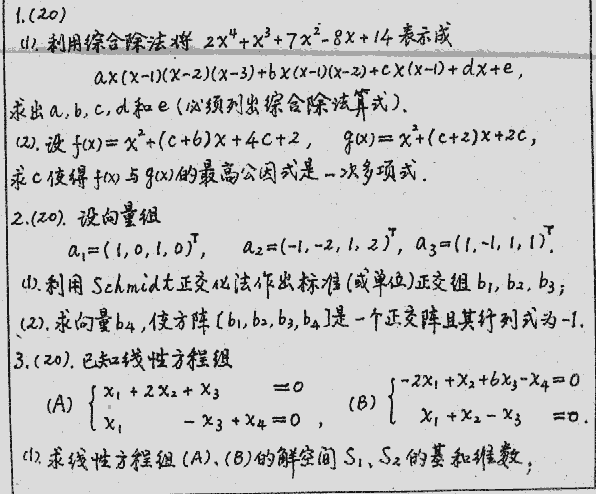 1.(20)
(1). 利用综合除法将 2x⁴+x³+7x²-8x+14 表示成
ax(x-1)(x-2)(x-3)+bx(x-1)(x-2)+cx(x-1)+dx+e,
求出a,b,c,d和e(必须列出综合除法算式).
(2). 设f(x)=x²+(c+6)x+4c+2, g(x)=x²+(c+2)x+2c,
求c使得f(x)与g(x)的最高公因式是一次多项式.
2.(20). 设向量组
a₁=(1,0,1,0)ᵀ, a₂=(-1,-2,1,2)ᵀ, a₃=(1,-1,1,1)ᵀ.
(1).利用Schmidt正交化法作出标准(或单位)正交组b₁,b₂,b₃;
(2).求向量b₄,使方阵[b₁,b₂,b₃,b₄]是一个正交阵且其行列式为-1.
3.(20).已知线性方程组
(A) { x₁+2x₂+x₃ =0 (B) { -2x₁+x₂+6x₃-x₄=0
x₁ -x₃+x₄=0, x₁+x₂-x₃ =0.
(1).求线性方程组(A)、(B)的解空间S₁、S₂的基和维数;